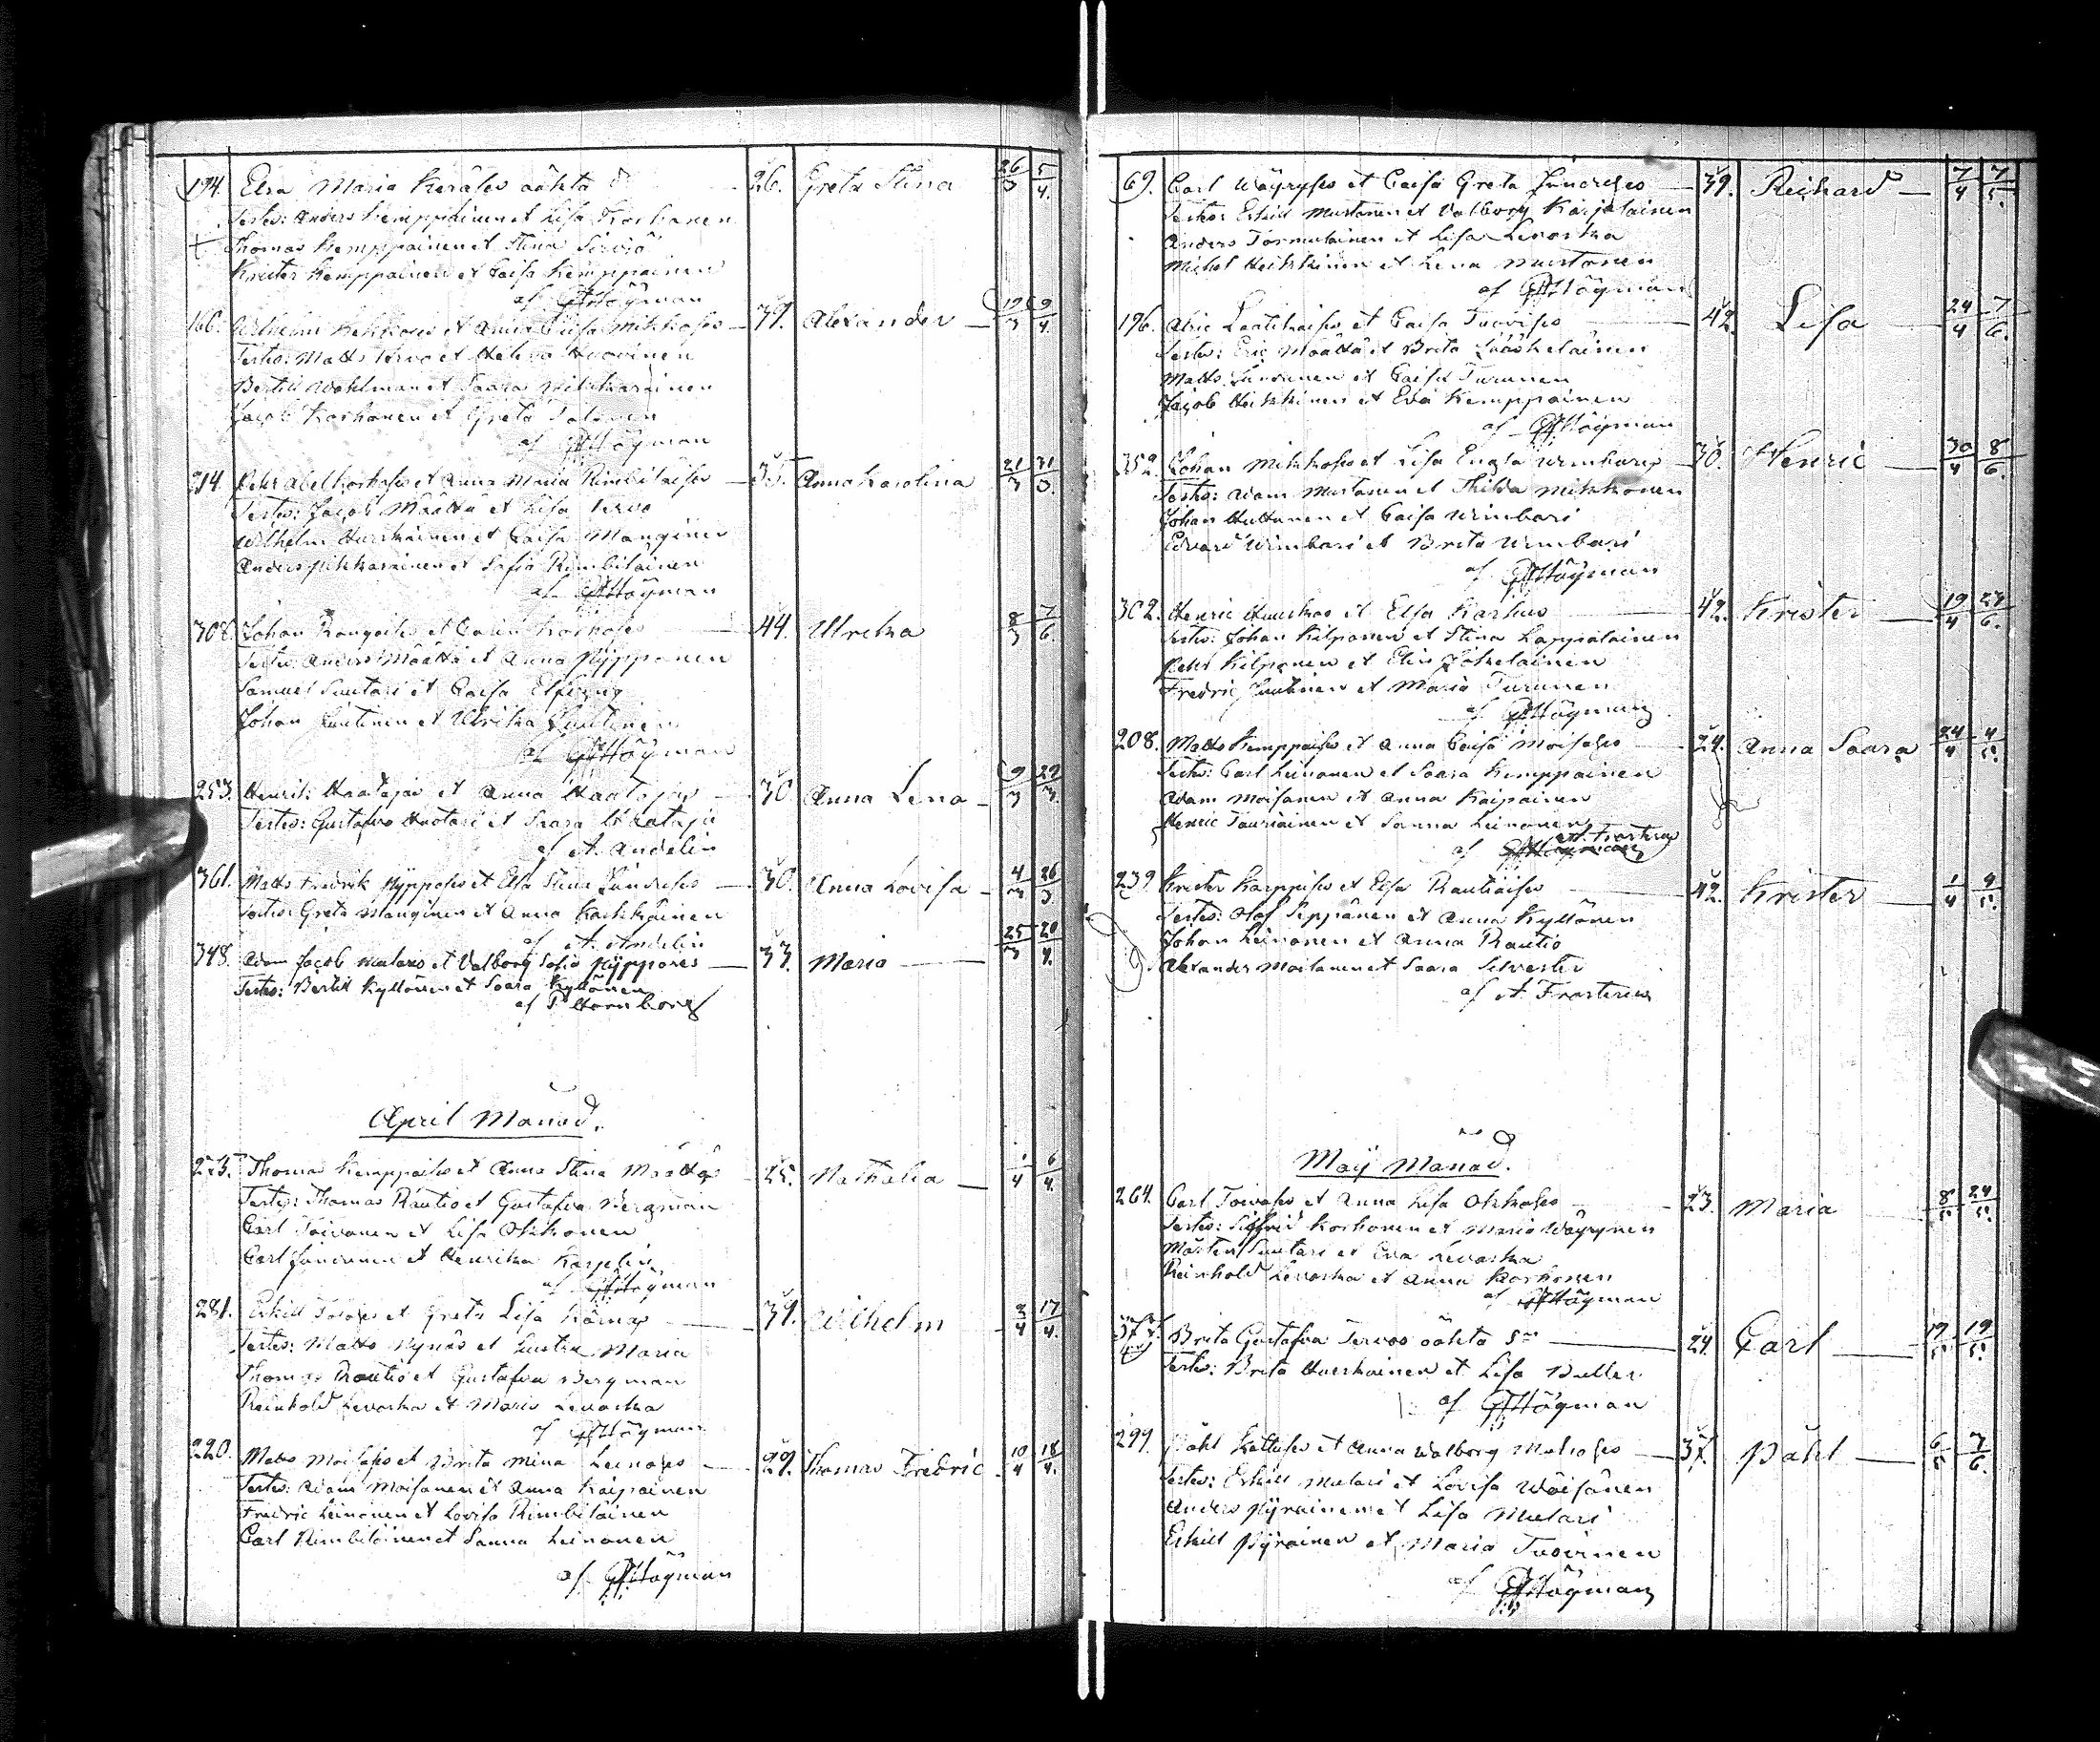 194. Elsa Maria Keräles oähta 26. Greta Stina 26/3 5/4.
Testes: Anders Kemppainen et Lisa Korhonen
Thomas Kemppainen et Stina
Krister Kemppainen et Caisa Kemppainen
af Högman
166. Wilhelm et Anna Caisa Mikkoses 39. Alexander 19/3 9/4.
Testes: Matts Arvo et Helena Huovinen
Bertill Wahlman et Saara Pikkarainen
Jacob Korhonen et Greta
af Högman
214. Petr Abel Korhoses et Anna Maria Rimbiläises 35. Anna Karolina 21/3 31/3.
Testes: Jacob Määttä et Lisa Tervo
Wilhelm Hurskainen et Caisa Manginen
Anders Pikkarainen et Sofia Rimbiläinen
af Högman
308. Johan et Carin Korhoses 44. Ulrika 8/3 7/6.
Testes: Anders Määttä et Anna Nypponen
Samuel Suutari et Caisa Elfving
Johan Juutinen et Ulrika Juutinen
af Högman
253. Henrik Haatajas et Anna Haatajas 30. Anna Lena 9/3 29/3.
Testes: Gustafva Huotari et Saara Haataja
af A. Andelin
361. Matts Fredrik Nypposes et Elsa Stina 30. Anna Lovisa 4/3 26/3
Testes: Greta Manginen et Anna Karhkainen
af A. Andelin
348. Adam Jacob Mularis et Valborg Sofia Nyppores 33. Maria 25/3 20/4.
Testes: Bertill Kyllönen et Saara Kyllönen
af P Hornborg
April Månad.
225. Thomas Kemppaises et Anna Stina Määttäs 25. Nathalia 1/4 6/4.
Testes: Thomas Rautio et Gustafva Bergman
Carl Toivanen et Lisa Okkonen
Carl Juntunen et Henrika Karplin
af Högman
281. Eskill et Greta Lisa 39. Wilhelm 3/4 17/4.
Testes: Matts Nynäs et Maria
Thomas Rautio et Gustafva Bergman
Reinhold Levoska et Maria Levoska
af Högman
220. Matts Moilases et Brita Mina Leinoses 29. Thomas Fredric 10/4 18/4.
Testes: Adam Moisanen et Anna Kaipainen
Fredric Leinonen et Lovisa Rimbiläinen
Carl Rimbiläinen et Sanna Leinonen
af Högman
69. Carl Wäyryses et Caisa Greta 39. Reichard 7/4 7/5.
Testes: Eskill Mustonen et Valborg Karjalainen
Anders Tormulainen et Lisa Levoska
Michel Heikkinen et Lena Mustonen
af Högman
196. Alric Laatikaises et Caisa Tuovises 42. Lisa 24/4 7/6.
Testes: Eric Määttä et Brita Jääskeläinen
Matts Juntunen et Caisa Turunen
Jacob Heikkinen et Eva Kemppainen
af Högman
352. Johan Mikkoses et Lisa Engla Wimbaris 30. Henric 30/4 8/6.
Testes: Adam Mustonen et Thilda Mikkonen
Johan Huttunen et Caisa Wimbari
Edvard Wimbari et Brita Wimbari
af Högman
302. Henric et Elsa Karhus 42. Krister 19/4 27/6.
Testes: Johan Kilponen et Stina Lappalainen
Petr Kilponen et Elin Jokelainen
Fredric Juutinen et Maria Turunen
af Högman
208. Matts Kemppaises et Anna Caisa Moisases 24. Anna Saara 24/4 4/5.
Testes: Carl Leinonen et Saara Kemppainen
Adam Moisanen et Anna Kaipainen
Henric Tauriainen et Sanna Leinonen
af A. Frosterus
239. Krister Karppises et Elsa Rautiaises 42. Krister 1/4 9/5.
Testes: Olof Seppänen et Anna Kyllönen
Johan Leinonen et Anna Rautio
Alexander Moilanen et Saara Silvester
af A. Frosterus
Maij Månad.
264. Carl Toivases et Anna Lisa Okkoses 23. Maria 8/5 24/5.
Testes: Sigfrid Korhonen et Maria Wäyrynen
Mårten Suutari et Eva Levoska
Reinhold Levoska et Anna Korhonen
af Högman
377. Brita Gustafva Tervos oähta Sn 24. Carl 17/5 19/5.
Testes: Brita Hurskainen et Lisa Buller
af Högman
299. Påhl et Anna Walborg 37. Påhl 6/5 7/6.
Testes: Eskill Mulari et Lovisa Wäisänen
Anders Pyrainen et Lisa Mulari
Eskill Pyrainen et Maria Tuovinen
af Högman